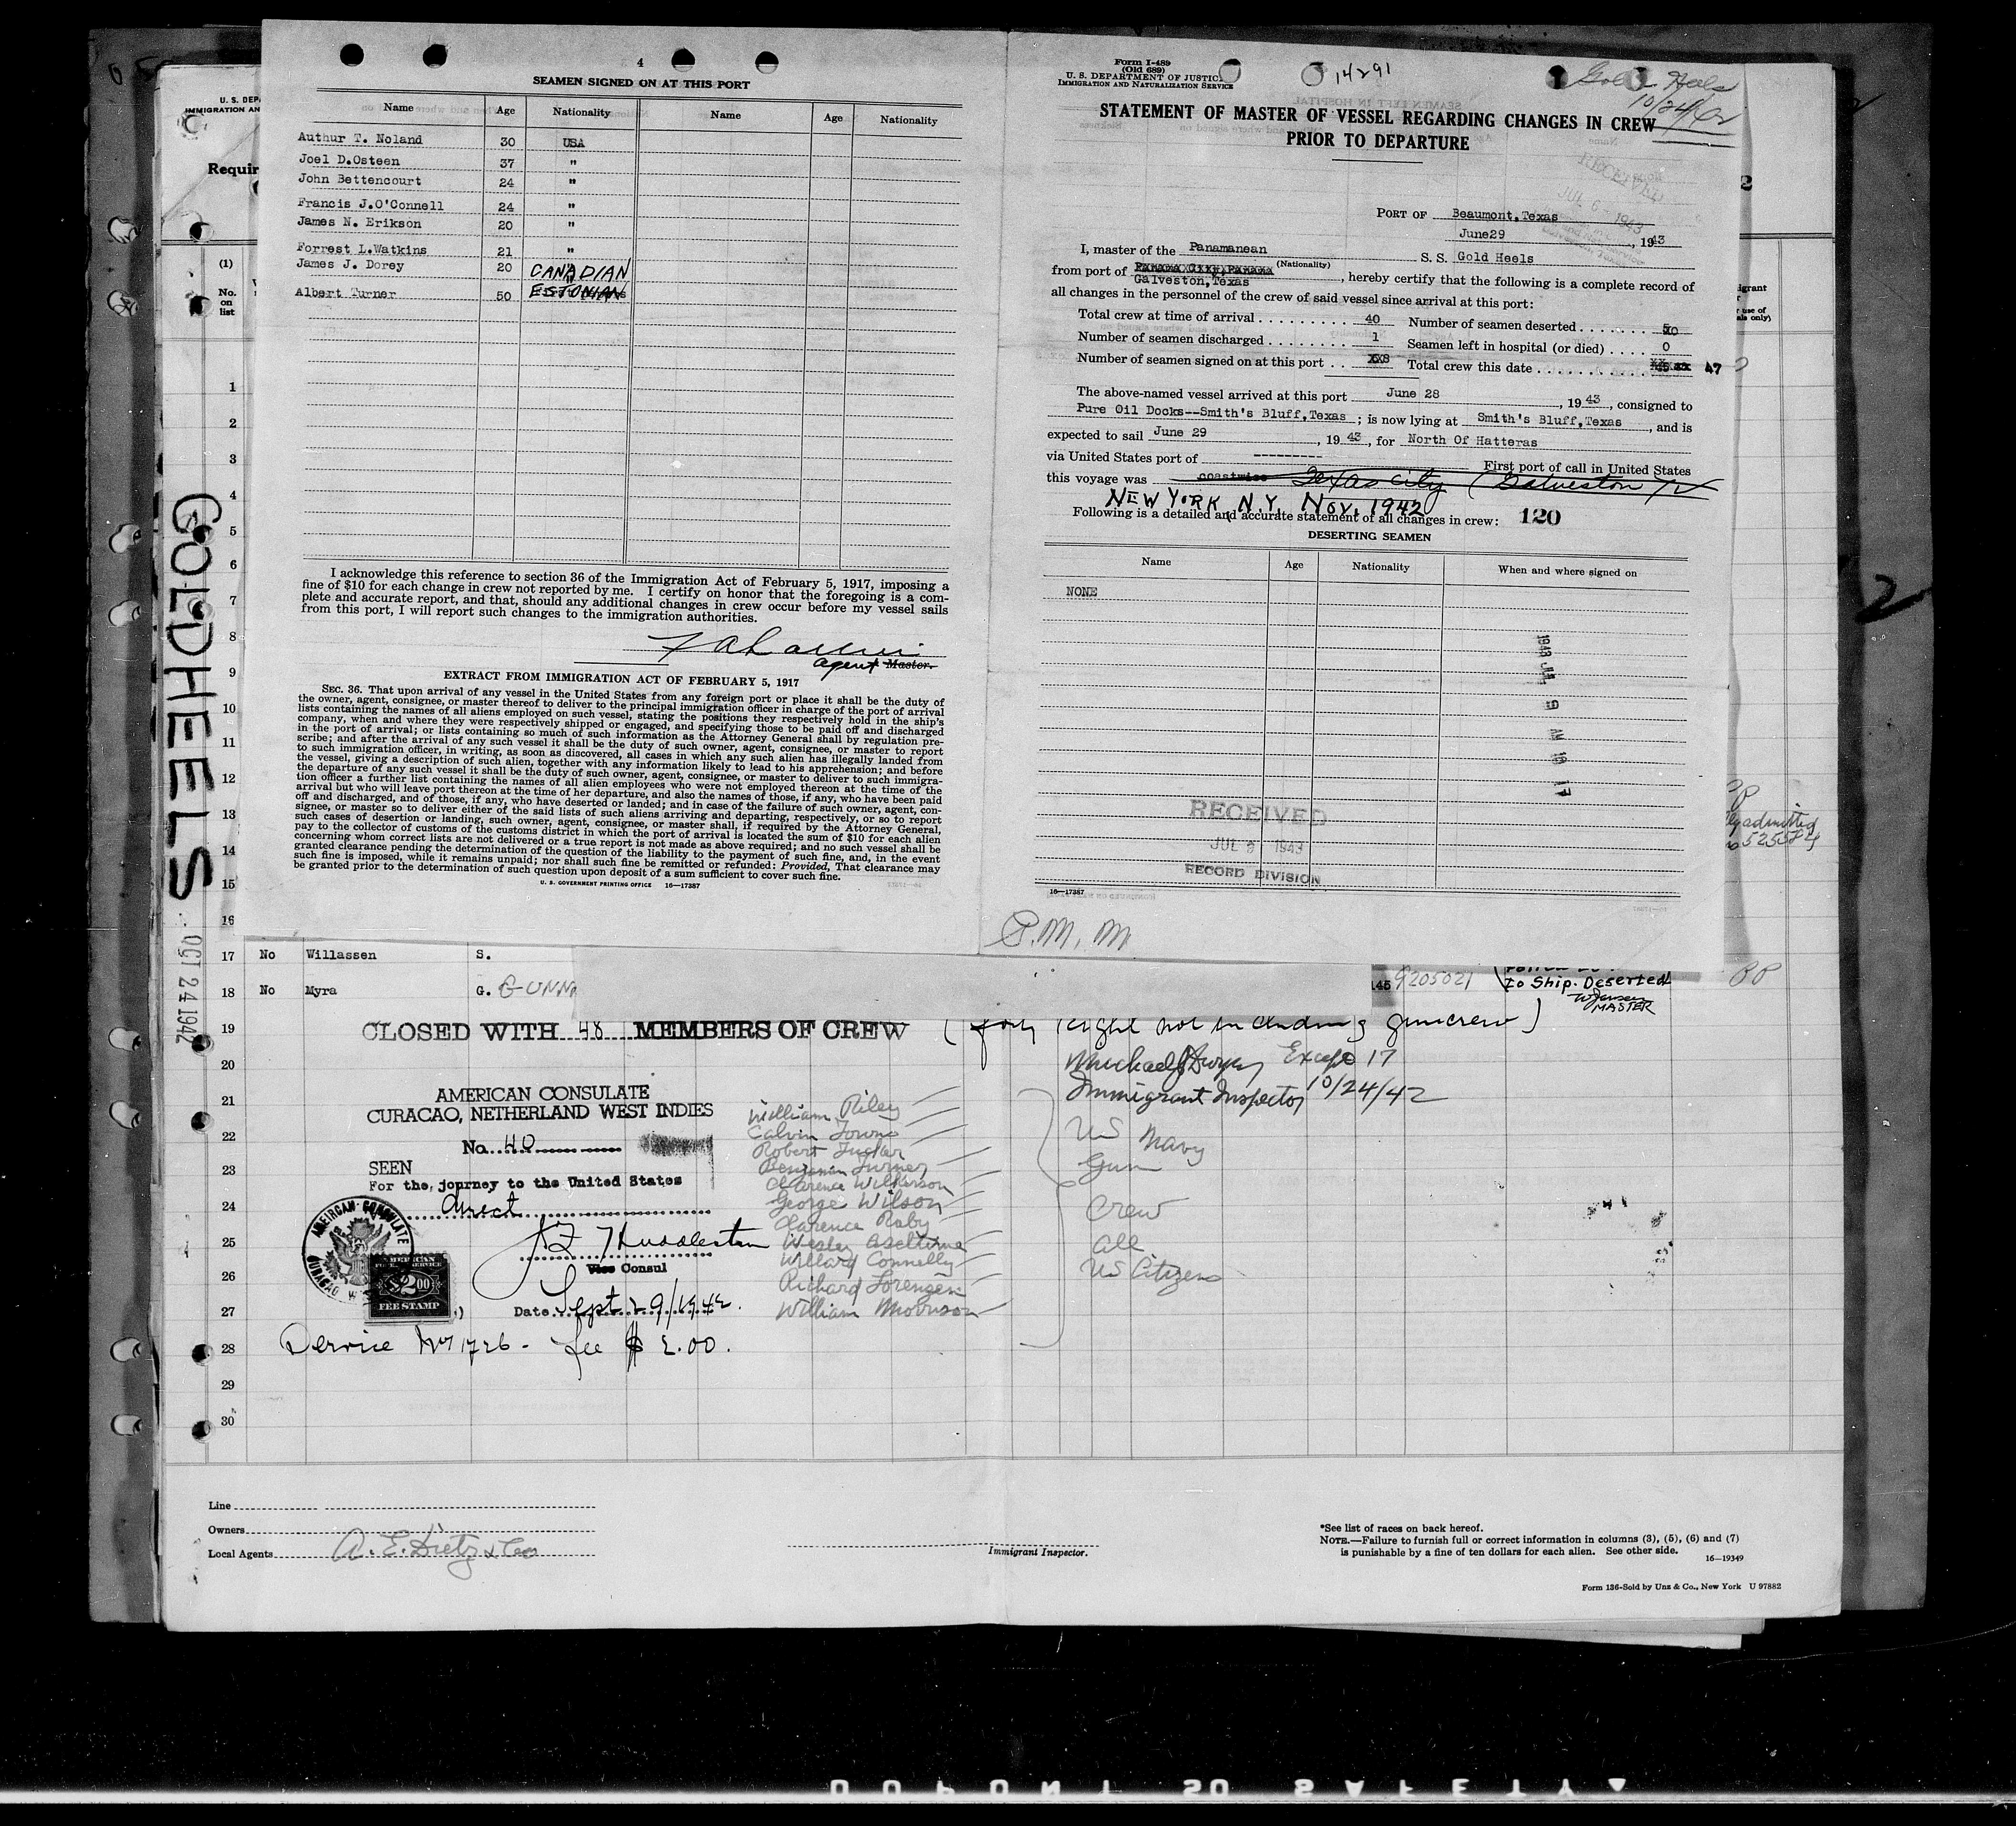 4
SEAMEN SIGNED ON AT THIS PORT
Name Age Nationality Name Age Nationality
Authur T. Noland 30 USA
Joel D.Osteen 37 "
John Bettencourt 24 "
Francis J.O'Connell 24 "
James N. Erikson 20 "
Forrest L.Watkins 21 "
James J. Dorey 20 CANADIAN
Albert Turner 50 ESTONIAN
I acknowledge this reference to section 36 of the Immigration Act of February 5, 1917, imposing a
fine of $10 for each change in crew not reported by me. I certify on honor that the foregoing is a com-
plete and accurate report, and that, should any additional changes in crew occur before my vessel sails
from this port, I will report such changes to the immigration authorities.
agent Master.
EXTRACT FROM IMMIGRATION ACT OF FEBRUARY 5, 1917
SEC. 36. That upon arrival of any vessel in the United States from any foreign port or place it shall be the duty of
the owner, agent, consignee, or master thereof to deliver to the principal immigration officer in charge of the port of arrival
lists containing the names of all aliens employed on such vessel, stating the positions they respectively hold in the ship's
company, when and where they were respectively shipped or engaged, and specifying those to be paid off and discharged
in the port of arrival; or lists containing so much of such information as the Attorney General shall by regulation pre-
scribe; and after the arrival of any such vessel it shall be the duty of such owner, agent, consignee, or master to report
to such immigration officer, in writing, as soon as discovered, all cases in which any such alien has illegally landed from
the vessel, giving a description of such alien, together with any information likely to lead to his apprehension; and before
the departure of any such vessel it shall be the duty of such owner, agent, consignee, or master to deliver to such immigra-
tion officer a further list containing the names of all alien employees who were not employed thereon at the time of the
arrival but who will leave port thereon at the time of her departure, and also the names of those, if any, who have been paid
off and discharged, and of those, if any, who have deserted or landed; and in case of the failure of such owner, agent, con-
signee, or master so to deliver either of the said lists of such aliens arriving and departing, respectively, or so to report
such cases of desertion or landing, such owner, agent, consignee, or master shall, if required by the Attorney General,
pay to the collector of customs of the customs district in which the port of arrival is located the sum of $10 for each alien
concerning whom correct lists are not delivered or a true report is not made as above required; and no such vessel shall be
granted clearance pending the determination of the question of the liability to the payment of such fine, and, in the event
such fine is imposed, while it remains unpaid; nor shall such fine be remitted or refunded: Provided, That clearance may
be granted prior to the determination of such question upon deposit of a sum sufficient to cover such fine.
U. S. GOVERNMENT PRINTING OFFICE 16—17387
Form I-489
(Old 689)
U. S. DEPARTMENT OF JUSTICE
IMMIGRATION AND NATURALIZATION SERVICE
14291
Gold Heels
10/24/42
STATEMENT OF MASTER OF VESSEL REGARDING CHANGES IN CREW
PRIOR TO DEPARTURE
RECEIVED
JUL 6 1943
PORT OF Beaumont,Texas
June29, 1943
I, master of the Panamanean S. S. Gold Heels
(Nationality)
from port of Panama City,Panama, hereby certify that the following is a complete record of
Galveston,Texas
all changes in the personnel of the crew of said vessel since arrival at this port:
Total crew at time of arrival 40 Number of seamen deserted 0
Number of seamen discharged 1 Seamen left in hospital (or died) 0
Number of seamen signed on at this port 8 Total crew this date 47
The above-named vessel arrived at this port June 28, 1943, consigned to
Pure Oil Docks--Smith's Bluff,Texas; is now lying at Smith's Bluff,Texas, and is
expected to sail June 29, 1943, for North Of Hatteras
via United States port of ---------- First port of call in United States
this voyage was coastwise Texas City (Galveston Tx
NEW YORK N.Y. Nov. 1942
Following is a detailed and accurate statement of all changes in crew: 120
DESERTING SEAMEN
Name Age Nationality When and where signed on
NONE
1943 JUL 9 AM 10 17
RECEIVED
JUL 8 1943
RECORD DIVISION
16—17387
P.M. M
U. S. DEP
IMMIGRATION AN
Requir
(1)
No.
on
list
GOLDHEELS
OCT 24 1942
1
2
3
4
5
6
7
8
9
10
11
12
13
14
15
16
17 No Willassen S.
18 No Myra G. GUNN
145 9205021
to Ship. Deserted
MASTER
PP
2
admitted
19
CLOSED WITH 48 MEMBERS OF CREW (forty eight not including guncrew)
20
Except 17
Immigrant Inspector 10/24/42
21
22
23
24
25
26
27
28
29
30
AMERICAN CONSULATE
CURACAO, NETHERLAND WEST INDIES
No. 40
SEEN
For the journey to the United States
direct
Huddleston
Vice Consul
AMERICAN CONSULATE
CURACAO
AMERICAN
FOREIGN SERVICE
$2.00
FEE STAMP
Date Sept 29/1942.
Service No 1726 - fee $ 2.00.
William Riley
Calvin Towns
Robert Tucker
Benjamin Turner
Clarence Wilkerson
George Wilson
Clarence Raby
Wesley Aseltine
Willard Connelly
Richard Lorenzen
William Morrison
US Navy
Gun
Crew
all
US Citizens
Line
Owners
Local Agents A. E. Dietz & Co
Immigrant Inspector.
*See list of races on back hereof.
NOTE.—Failure to furnish full or correct information in columns (3), (5), (6) and (7)
is punishable by a fine of ten dollars for each alien. See other side.
16—19349
Form 136-Sold by Unz & Co., New York U 97882